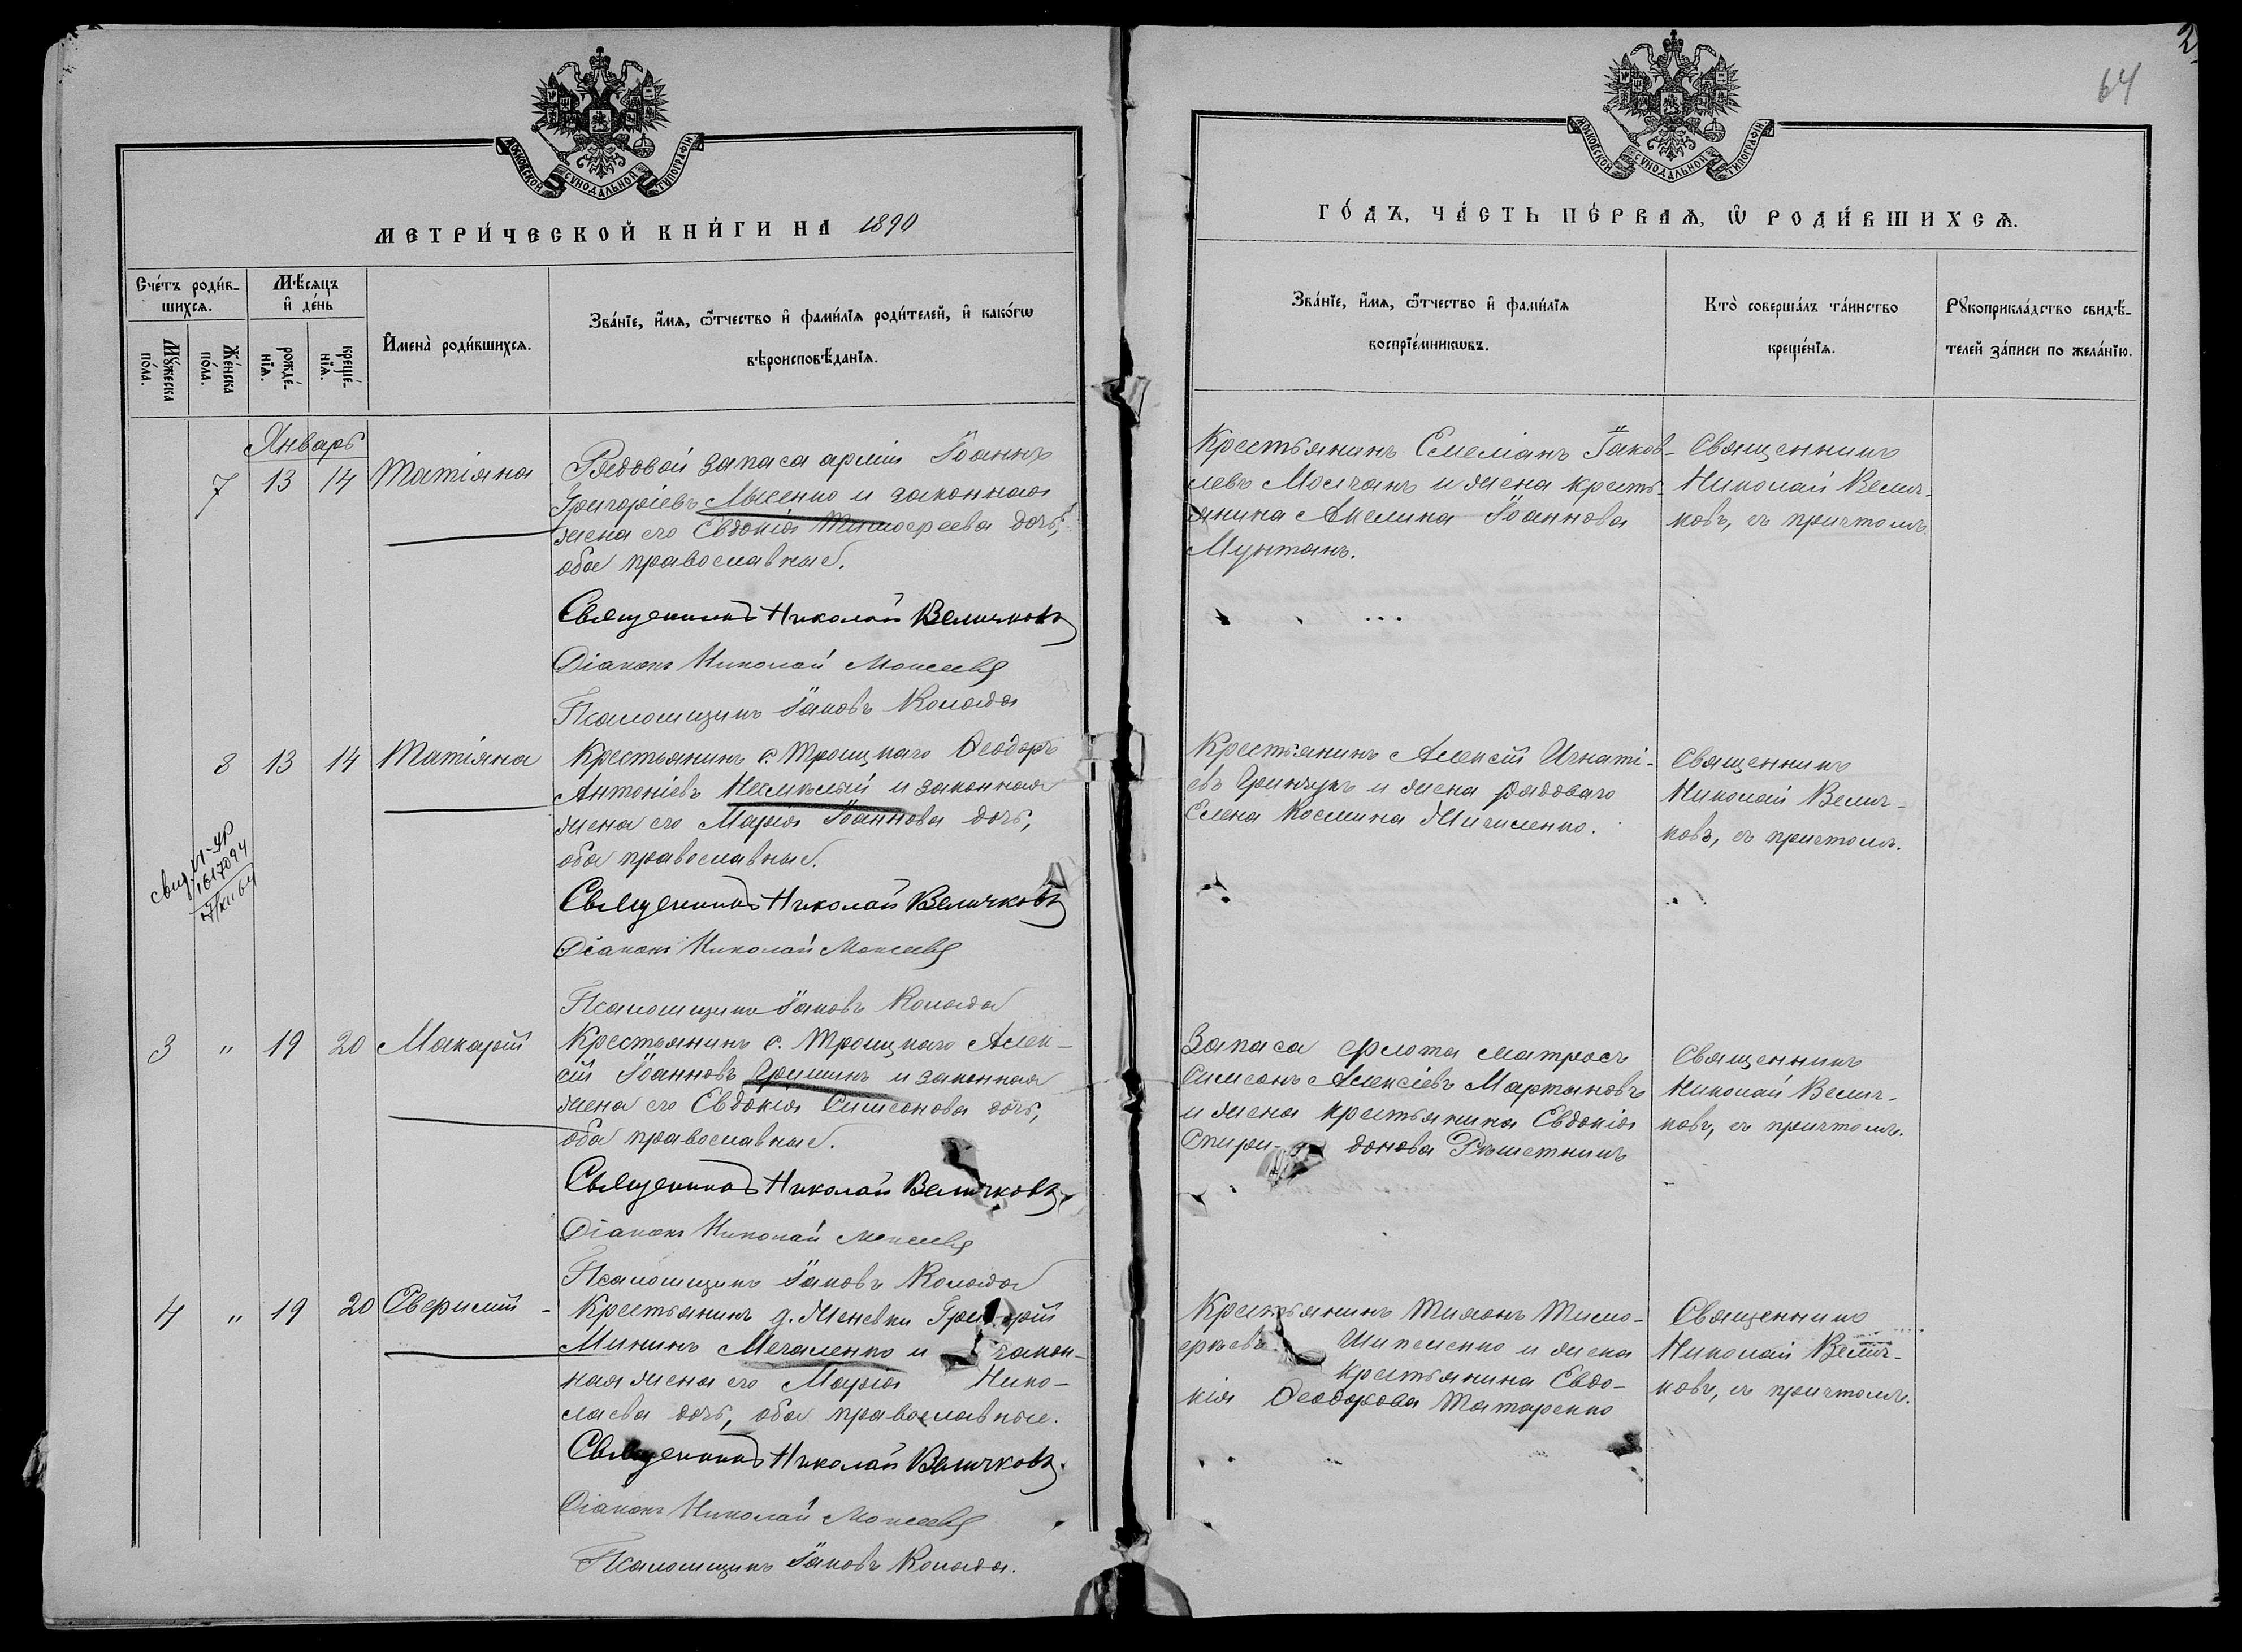 2
64
МОСКОВСКОЙ СУНОДАЛЬНОЙ ТИПОГРАФІИ
МОСКОВСКОЙ СУНОДАЛЬНОЙ ТИПОГРАФІИ
МЕТРИ́ЧЕСКОЙ КНИ́ГИ НА 1890
ГО́ДЪ, ЧА́СТЬ ПЕ́РВАѦ, Ѡ РОДИ́ВШИХСѦ.
Сче́тъ роди́в-
шихсѧ.
Мѣ́сѧцъ
и҆ де́нь
Мꙋ́жеска
по́ла.
Же́нска
по́ла.
рожде́-
нїѧ.
креще́-
нїѧ.
И҆мена̀ роди́вшихсѧ.
Зва́нїе, и҆́мѧ, ѻ҆́тчество и҆ фами́лїѧ роди́телей, и҆ како́гѡ
вѣроисповѣ́данїѧ.
Зва́нїе, и҆́мѧ, ѻ҆́тчество и҆ фами́лїѧ
воспрїе́мникѡвъ.
Кто̀ соверша́лъ та́инство
креще́нїѧ.
Рꙋкоприкла́дство свидѣ́-
телей за́писи по жела́нїю.
Январь
7 13 14 Татіяна
Рядовой запаса арміи Іоаннъ
Григоріевъ Лысенко и законная
жена его Евдокія Тимоѳеева дочь,
оба православные.
Священникъ Николай Величковъ
Діаконъ Николай Моисеевъ
Псаломщикъ Іаковъ Коляда
Крестьянинъ Емеліанъ Іаков-
левъ Молчанъ и жена кресть-
янина Акелина Іоаннова
Мунтянъ.
Священникъ
Николай Велич-
ковъ, съ причтомъ.
8 13 14 Татіяна
Крестьянинъ с. Троицкаго Ѳеодоръ
Антоніевъ и законная
жена его Марія Іоаннова дочь,
оба православные.
Священникъ Николай Величковъ
Діаконъ Николай Моисеевъ
Псаломщикъ Іаковъ Коляда
Крестьянинъ Алексій Игнаті-
евъ Гринчукъ и жена рядоваго
Елена Космина
Священникъ
Николай Велич-
ковъ, съ причтомъ.
свид. II-УР
1617094
3 " 19 20 Макарій
Крестьянинъ с. Троицкаго Алек-
сій Іоанновъ Гришинъ и законная
жена его Евдокія Симеонова дочь,
оба православные.
Священникъ Николай Величковъ
Діаконъ Николай Моисеевъ
Псаломщикъ Іаковъ Коляда
Запаса флота матросъ
Симеонъ Алексіевъ Мартыновъ
и жена крестьянина Евдокія
Спири- донова Рѣшетникъ
Священникъ
Николай Велич-
ковъ, съ причтомъ.
4 " 19 20 Севериній -
Крестьянинъ д. Женевки Григорій
Мининъ и закон-
ная жена его Марія Нико-
лаева дочь, оба православные.
Священникъ Николай Величковъ.
Діаконъ Николай Моисеевъ
Псаломщикъ Іаковъ Коляда.
Крестьянинъ Тихонъ Тимо-
ѳеевъ Шипеленко и жена
крестьянина Евдо-
кія Ѳеодорова Татаренко
Священникъ
Николай Велич-
ковъ, съ причтомъ.